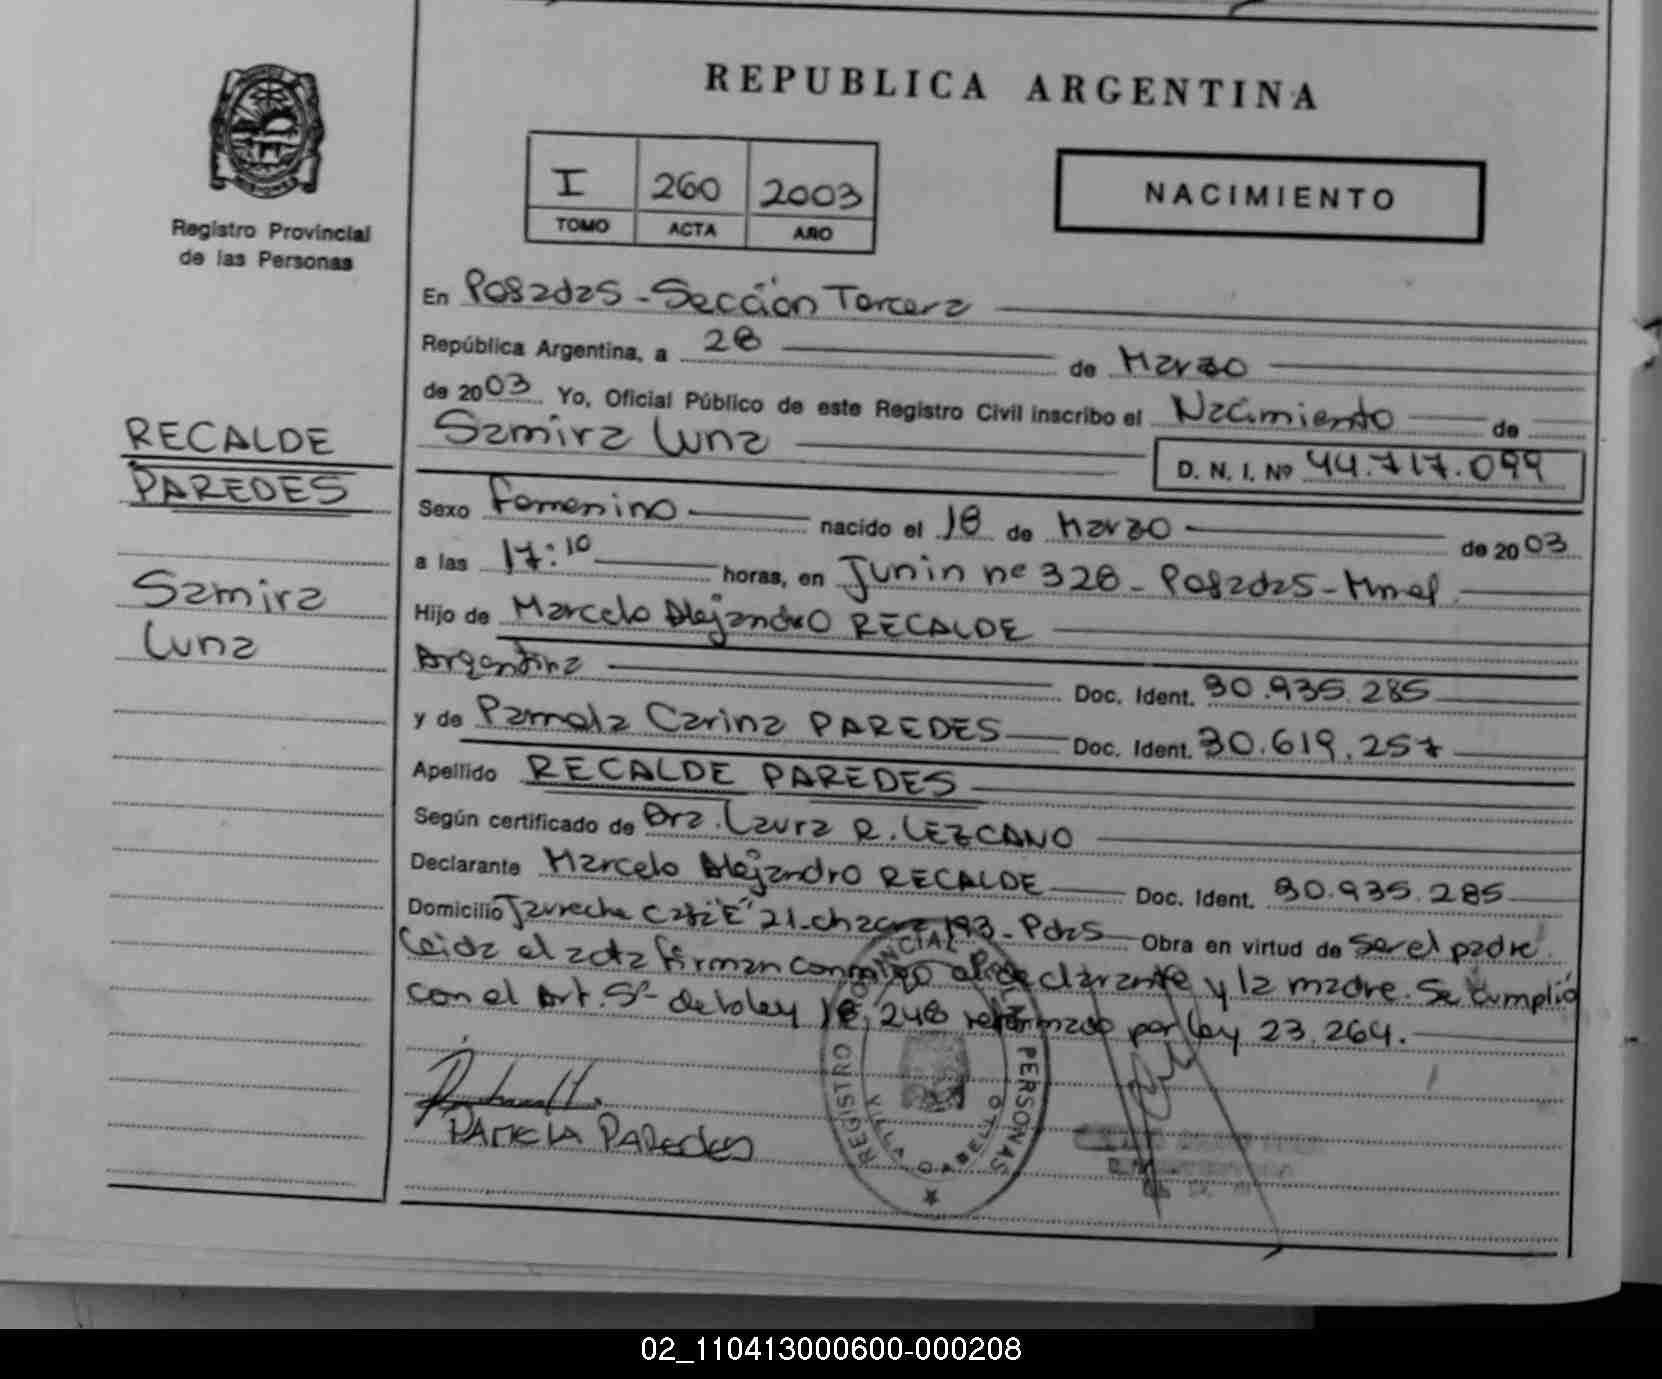 REPUBLICA ARGENTINA
I 260 2003
TOMO ACTA AÑO
NACIMIENTO
Registro Provincial
de las Personas
RECALDE
PAREDES
Samira
Luna
En Posadas - Sección Tercera
República Argentina, a 28 de Marzo
de 2003 Yo, Oficial Público de este Registro Civil inscribo el Nacimiento de
Samira Luna
D. N. I. Nº 44.717.099
Sexo Femenino nacido el 18 de Marzo de 2003
a las 17:10 horas, en Junin nº 328 - Posadas - Mnes
Hijo de Marcelo Alejandro RECALDE
Argentina Doc. Ident. 30.935.285
y de Pamela Carina PAREDES Doc. Ident. 30.619.257
Apellido RECALDE PAREDES
Según certificado de Dra. Laura R. LEZCANO
Declarante Marcelo Alejandro RECALDE Doc. Ident. 30.935.285
Domicilio "E" 21 - chacra 193 - Pdas Obra en virtud de ser el padre
Leida el acta firman conmigo el declarante y la madre. Se cumplió
con el Art. 5º de la ley 18.248 reformado por ley 23.264.
PAMELA PAREDES
REGISTRO PROVINCIAL PERSONAS
02_110413000600-000208